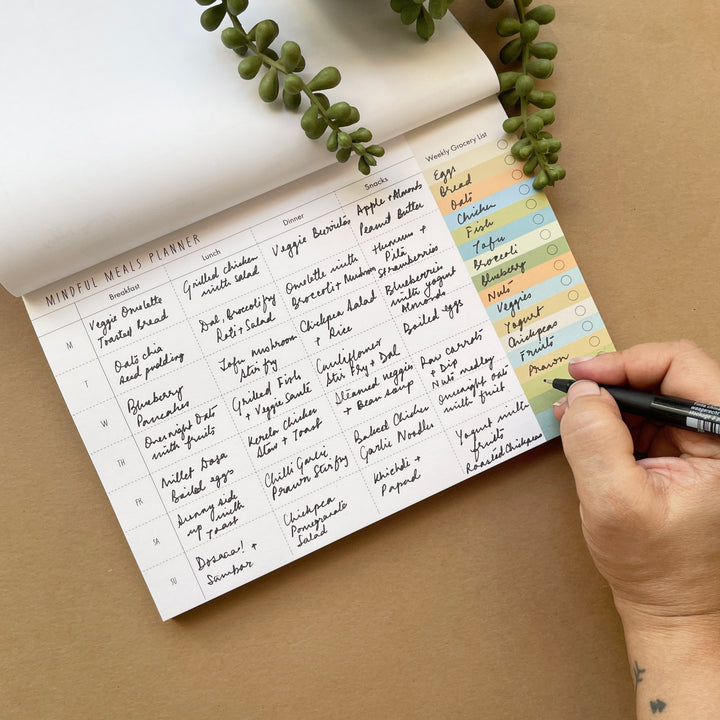 MINDFUL MEALS PLANNER
Breakfast
Lunch
Dinner
Snacks
M
Veggie Omelette
Toasted Bread
Grilled chicken
with salad
Veggie Burritos
Apple + Almonds
Peanut Butter
T
Oats chia
seed pudding
Dal, Broccoli fry
Roti + Salad
Omelette with
Broccoli + Mushroom
Hummus +
Pita
Strawberries
W
Blueberry
Pancakes
Tofu mushroom
stir fry
Chickpea Salad
+ Rice
Blueberries
with yogurt
Almonds
Boiled eggs
TH
Overnight Oats
with fruits
Grilled Fish
+ Veggie Sauté
Cauliflower
Stir Fry + Dal
Raw carrots
+ Dip
FR
Millet Dosa
Boiled eggs
Kerela chicken
Stew + Toast
Steamed veggies
+ Bean soup
Nuts medley
Overnight oats
with fruit
SA
Sunny side
up with
Toast
Chilli Garlic
Prawn Stir fry
Baked Chicken
Garlic Noodles
Yogurt with
fruits
SU
Dosaaa! +
Sambar
Chickpea
Pomegranate
Salad
Khichdi +
Papad
Roasted Chickpeas
Weekly Grocery List
Eggs
Bread
Oats
Chicken
Fish
Tofu
Broccoli
Blueberry
Nuts
Veggies
Yogurt
Chickpeas
Fruits
Prawn